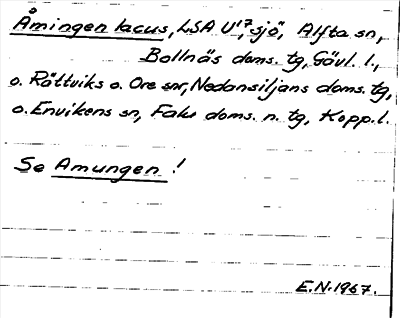 Åmingen lacus, LSA U¹⁷, sjö, Alfta sn,
Bollnäs doms. tg, Gävl. l.,
o. Rättviks o. Ore snr, Nedansiljans doms. tg,
o. Envikens sn, Falu doms. n. tg, Kopp. l.
Se Amungen !
E.N. 1967.